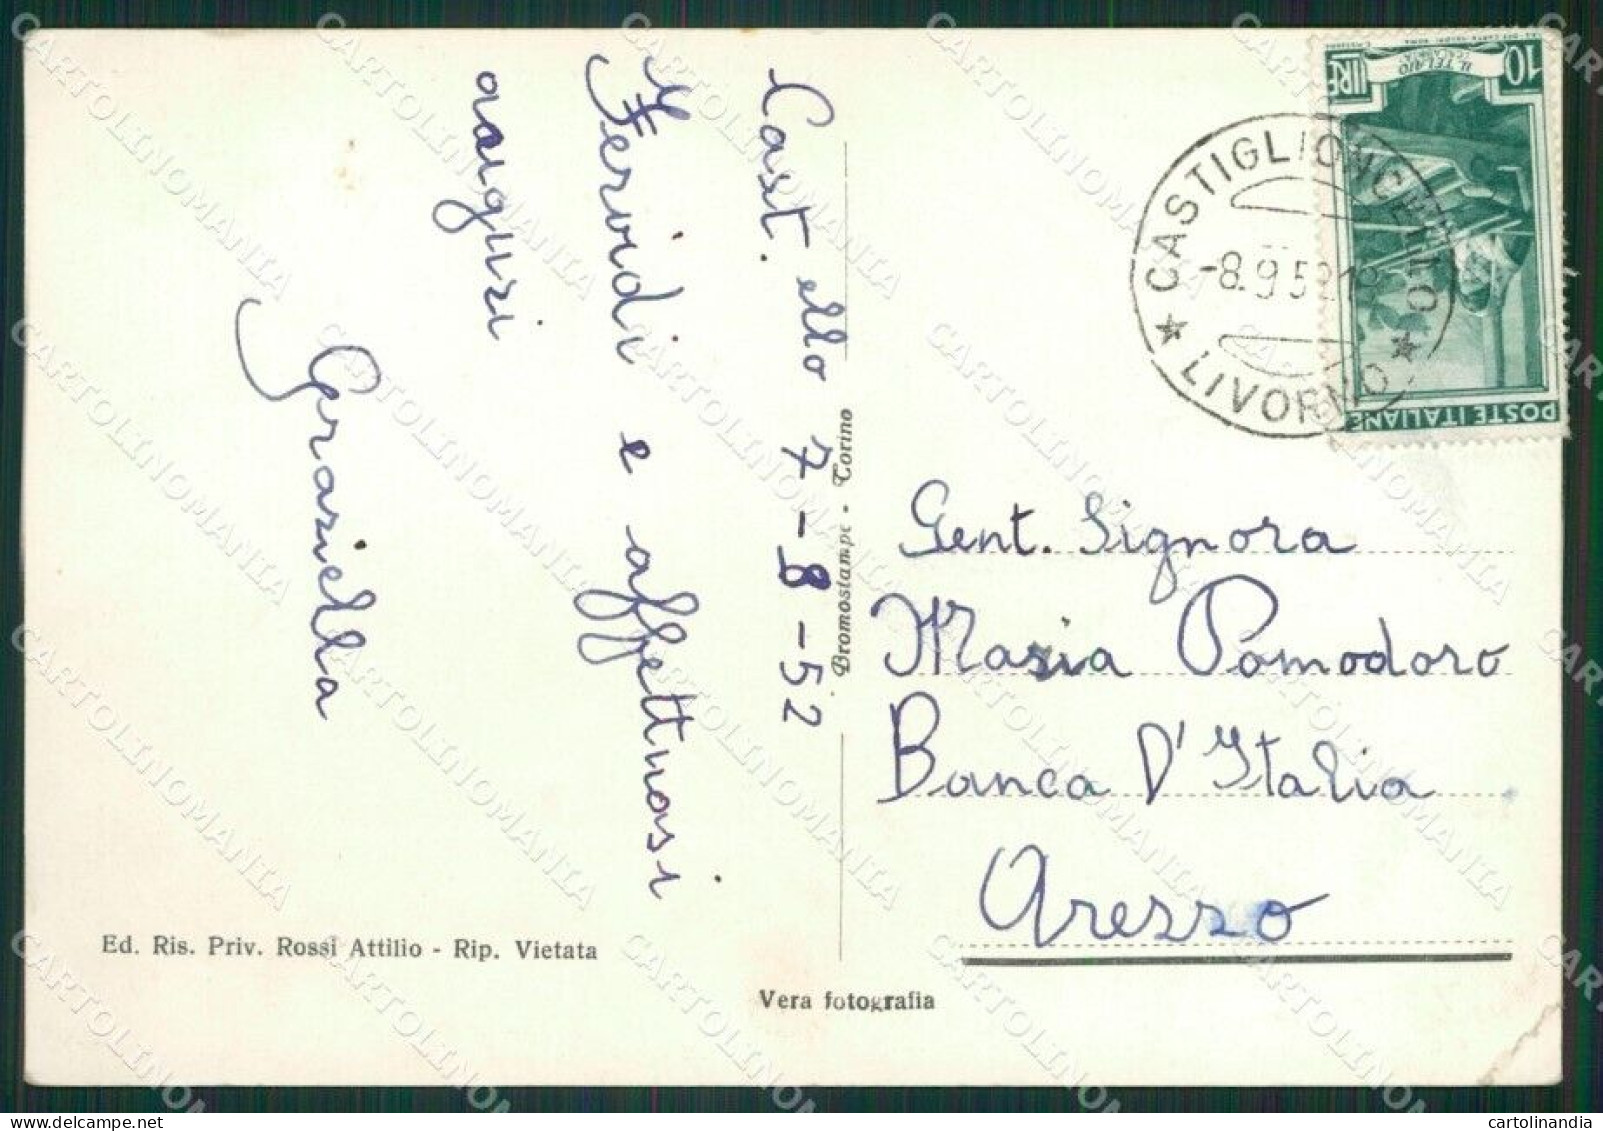 Cast.ello 7-8-52
Fervidi e affettuosi
auguri
Graziella
Bromostampe - Torino
Ed. Ris. Priv. Rossi Attilio - Rip. Vietata
Vera fotografia
10 LIRE
IL TELAIO
POSTE ITALIANE
CASTIGLIONCELLO
-8.9.52.18
★ LIVORNO ★
Gent. Signora
Maria Pomodoro
Banca D'Italia
Arezzo
CARTOLINOMANIA
cartolinandia